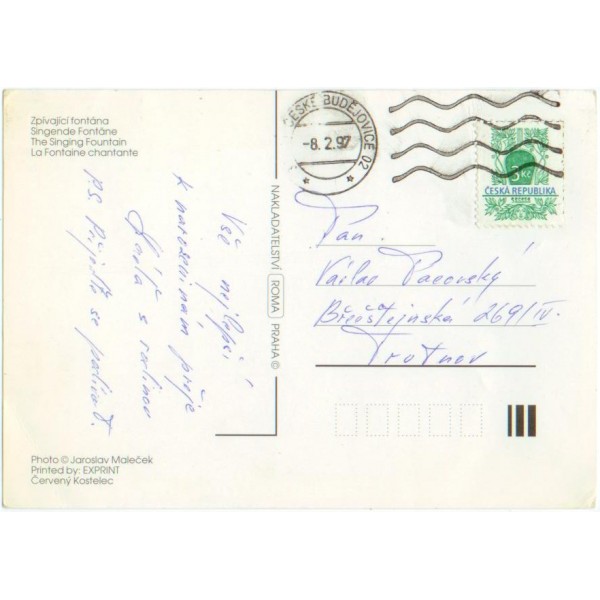 Zpívající fontána
Singende Fontäne
The Singing Fountain
La Fontaine chantante
Vše nejlepší
k narozeninám přeje
s rodinou
P.S. Přijeďte se podívat.
Photo © Jaroslav Maleček
Printed by: EXPRINT
Červený Kostelec
NAKLADATELSTVÍ ROMA PRAHA ©
ČESKÉ BUDĚJOVICE 02
-8.2.97
3 Kč
ČESKÁ REPUBLIKA
Pan
Václav Pacovský
269/IV.
Trutnov